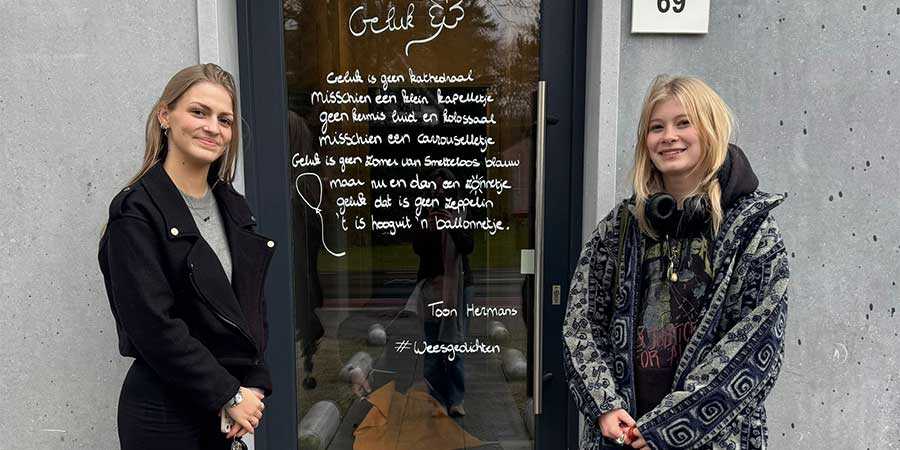 69
Geluk
Geluk is geen kathedraal
misschien een klein kapelletje
geen kermis luid en kolossaal
misschien een carrouselletje
Geluk is geen zomer van smetteloos blauw
maar nu en dan een zonnetje
geluk dat is geen zeppelin
't is hooguit 'n ballonnetje.
Toon Hermans
#Weesgedichten